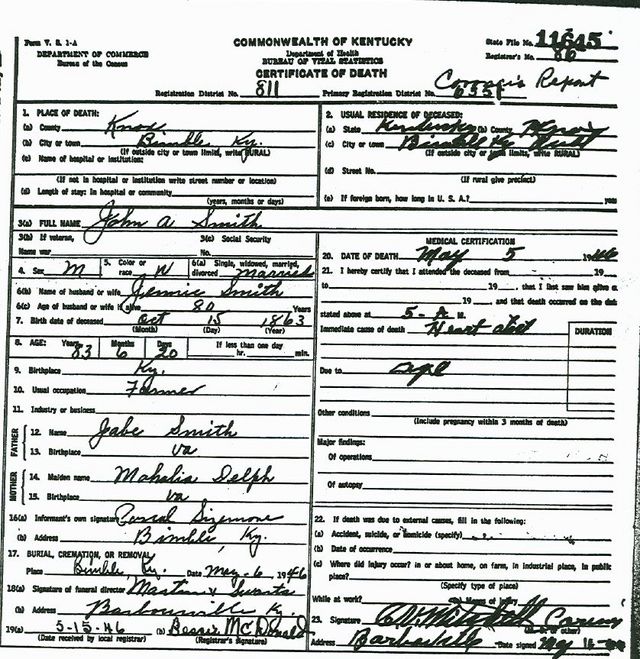 Form V. S. 1-A
DEPARTMENT OF COMMERCE
Bureau of the Census
COMMONWEALTH OF KENTUCKY
Department of Health
BUREAU OF VITAL STATISTICS
CERTIFICATE OF DEATH
State File No. 11645
Registrar's No. 86
Coroner's Report
Registration District No. 811 Primary Registration District No.
1. PLACE OF DEATH:
(a) County Knox
(b) City or town Bimble, Ky.
(If outside city or town limits, write RURAL)
(c) Name of hospital or institution:
(If not in hospital or institution write street number or location)
(d) Length of stay: In hospital or community
(years, months or days)
2. USUAL RESIDENCE OF DECEASED:
(a) State Kentucky (b) County Knox
(c) City or town Bimble Ky
(If outside city or town limits, write RURAL)
(d) Street No.
(If rural give precinct)
(e) If foreign born, how long in U. S. A.? years
3(a) FULL NAME John A Smith
3(b) If veteran, Name war
3(c) Social Security No.
4. Sex M 5. Color or race W 6(a) Single, widowed, married, divorced Married
6(b) Name of husband or wife Jennie Smith
6(c) Age of husband or wife if alive 80 Years
7. Birth date of deceased Oct 15 1863
(Month) (Day) (Year)
8. AGE: Years 83 Months 6 Days 20 If less than one day hr. min.
9. Birthplace Ky.
10. Usual occupation Farmer
11. Industry or business
FATHER
12. Name Jabe Smith
13. Birthplace Va
MOTHER
14. Maiden name Mahalia Delph
15. Birthplace Va
16(a) Informant's own signature Sizemore
(b) Address Bimble, Ky.
17. BURIAL, CREMATION, OR REMOVAL
Place Bimble, Ky. Date May-6, 1946
18(a) Signature of funeral director
(b) Address Barbourville Ky.
19(a) 5-15-46 (b) Bessie McDonald
(Date received by local registrar) (Registrar's signature)
MEDICAL CERTIFICATION
20. DATE OF DEATH May 5 1946
21. I hereby certify that I attended the deceased from 19
to 19 , that I last saw him alive o
19 and that death occurred on the dat
stated above at 5- A M.
Immediate cause of death Heart
DURATION
Due to age
Other conditions
(Include pregnancy within 3 months of death)
Major findings:
Of operations
Of autopsy
22. If death was due to external causes, fill in the following:
(a) Accident, suicide, or homicide (specify)
(b) Date of occurrence
(c) Where did injury occur? in or about home, on farm, in industrial place, in public
place?
(Specify type of place)
While at work?
23. Signature Mitchell
Address Date signed May